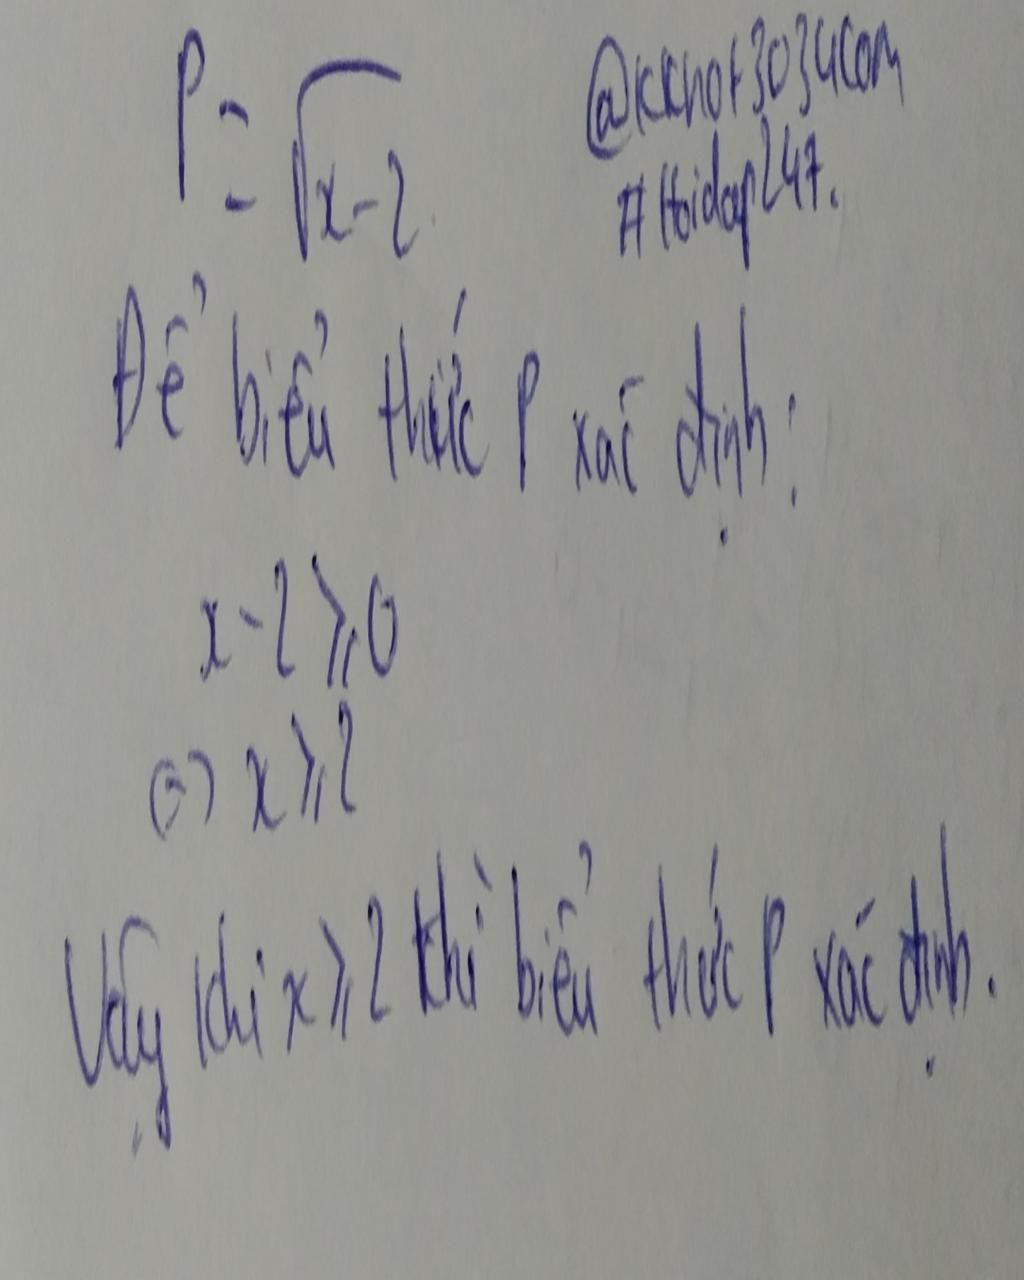 P = √x-2
@kkhot3034com
#Hoidap247.
Để biểu thức P xác định:
x-2 ⩾ 0
⇔ x ⩾ 2
Vậy khi x ⩾ 2 thì biểu thức P xác định.